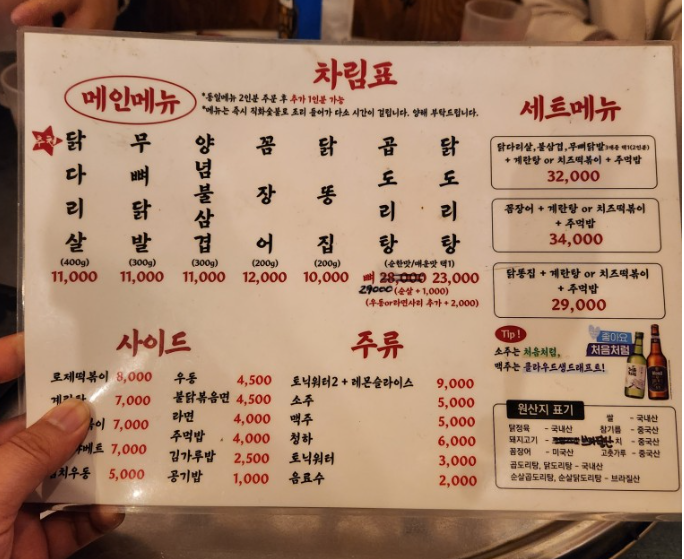 차림표
메인메뉴
*동일메뉴 2인분 주문 후 추가 1인분 가능
*메뉴는 즉시 직화숯불로 조리 들어가 다소 시간이 걸립니다. 양해 부탁드립니다.
추천
닭다리살
(400g)
11,000
무뼈닭발
(300g)
11,000
양념불삼겹
(300g)
11,000
꼼장어
(200g)
12,000
닭똥집
(200g)
10,000
곱도리탕 닭도리탕
(순한맛/매운맛 택1)
뼈 28,000 23,000
29000 (순살 + 1,000)
(우동or라면사리 추가 + 2,000)
세트메뉴
닭다리살,불삼겹,무뼈닭발
+ 계란탕 or 치즈떡볶이 + 주먹밥
32,000
꼼장어 + 계란탕 or 치즈떡볶이
+ 주먹밥
34,000
닭똥집 + 계란탕 or 치즈떡볶이
+ 주먹밥
29,000
사이드
로제떡볶이 8,000
계란탕 7,000
볶이 7,000
베트 7,000
치우동 5,000
우동 4,500
불닭볶음면 4,500
라면 4,000
주먹밥 4,000
김가루밥 2,500
공기밥 1,000
주류
토닉워터2 + 레몬슬라이스 9,000
소주 5,000
맥주 5,000
청하 6,000
토닉워터 3,000
음료수 2,000
Tip !
소주는 처음처럼,
맥주는 클라우드생드래프트!
좋아요
처음처럼
원산지 표기
닭정육 - 국내산
돼지고기 -
꼼장어 - 미국산
쌀 - 국내산
참기름 - 중국산
치 - 중국산
고춧가루 - 중국산
곱도리탕, 닭도리탕 - 국내산
순살곱도리탕, 순살닭도리탕 - 브라질산